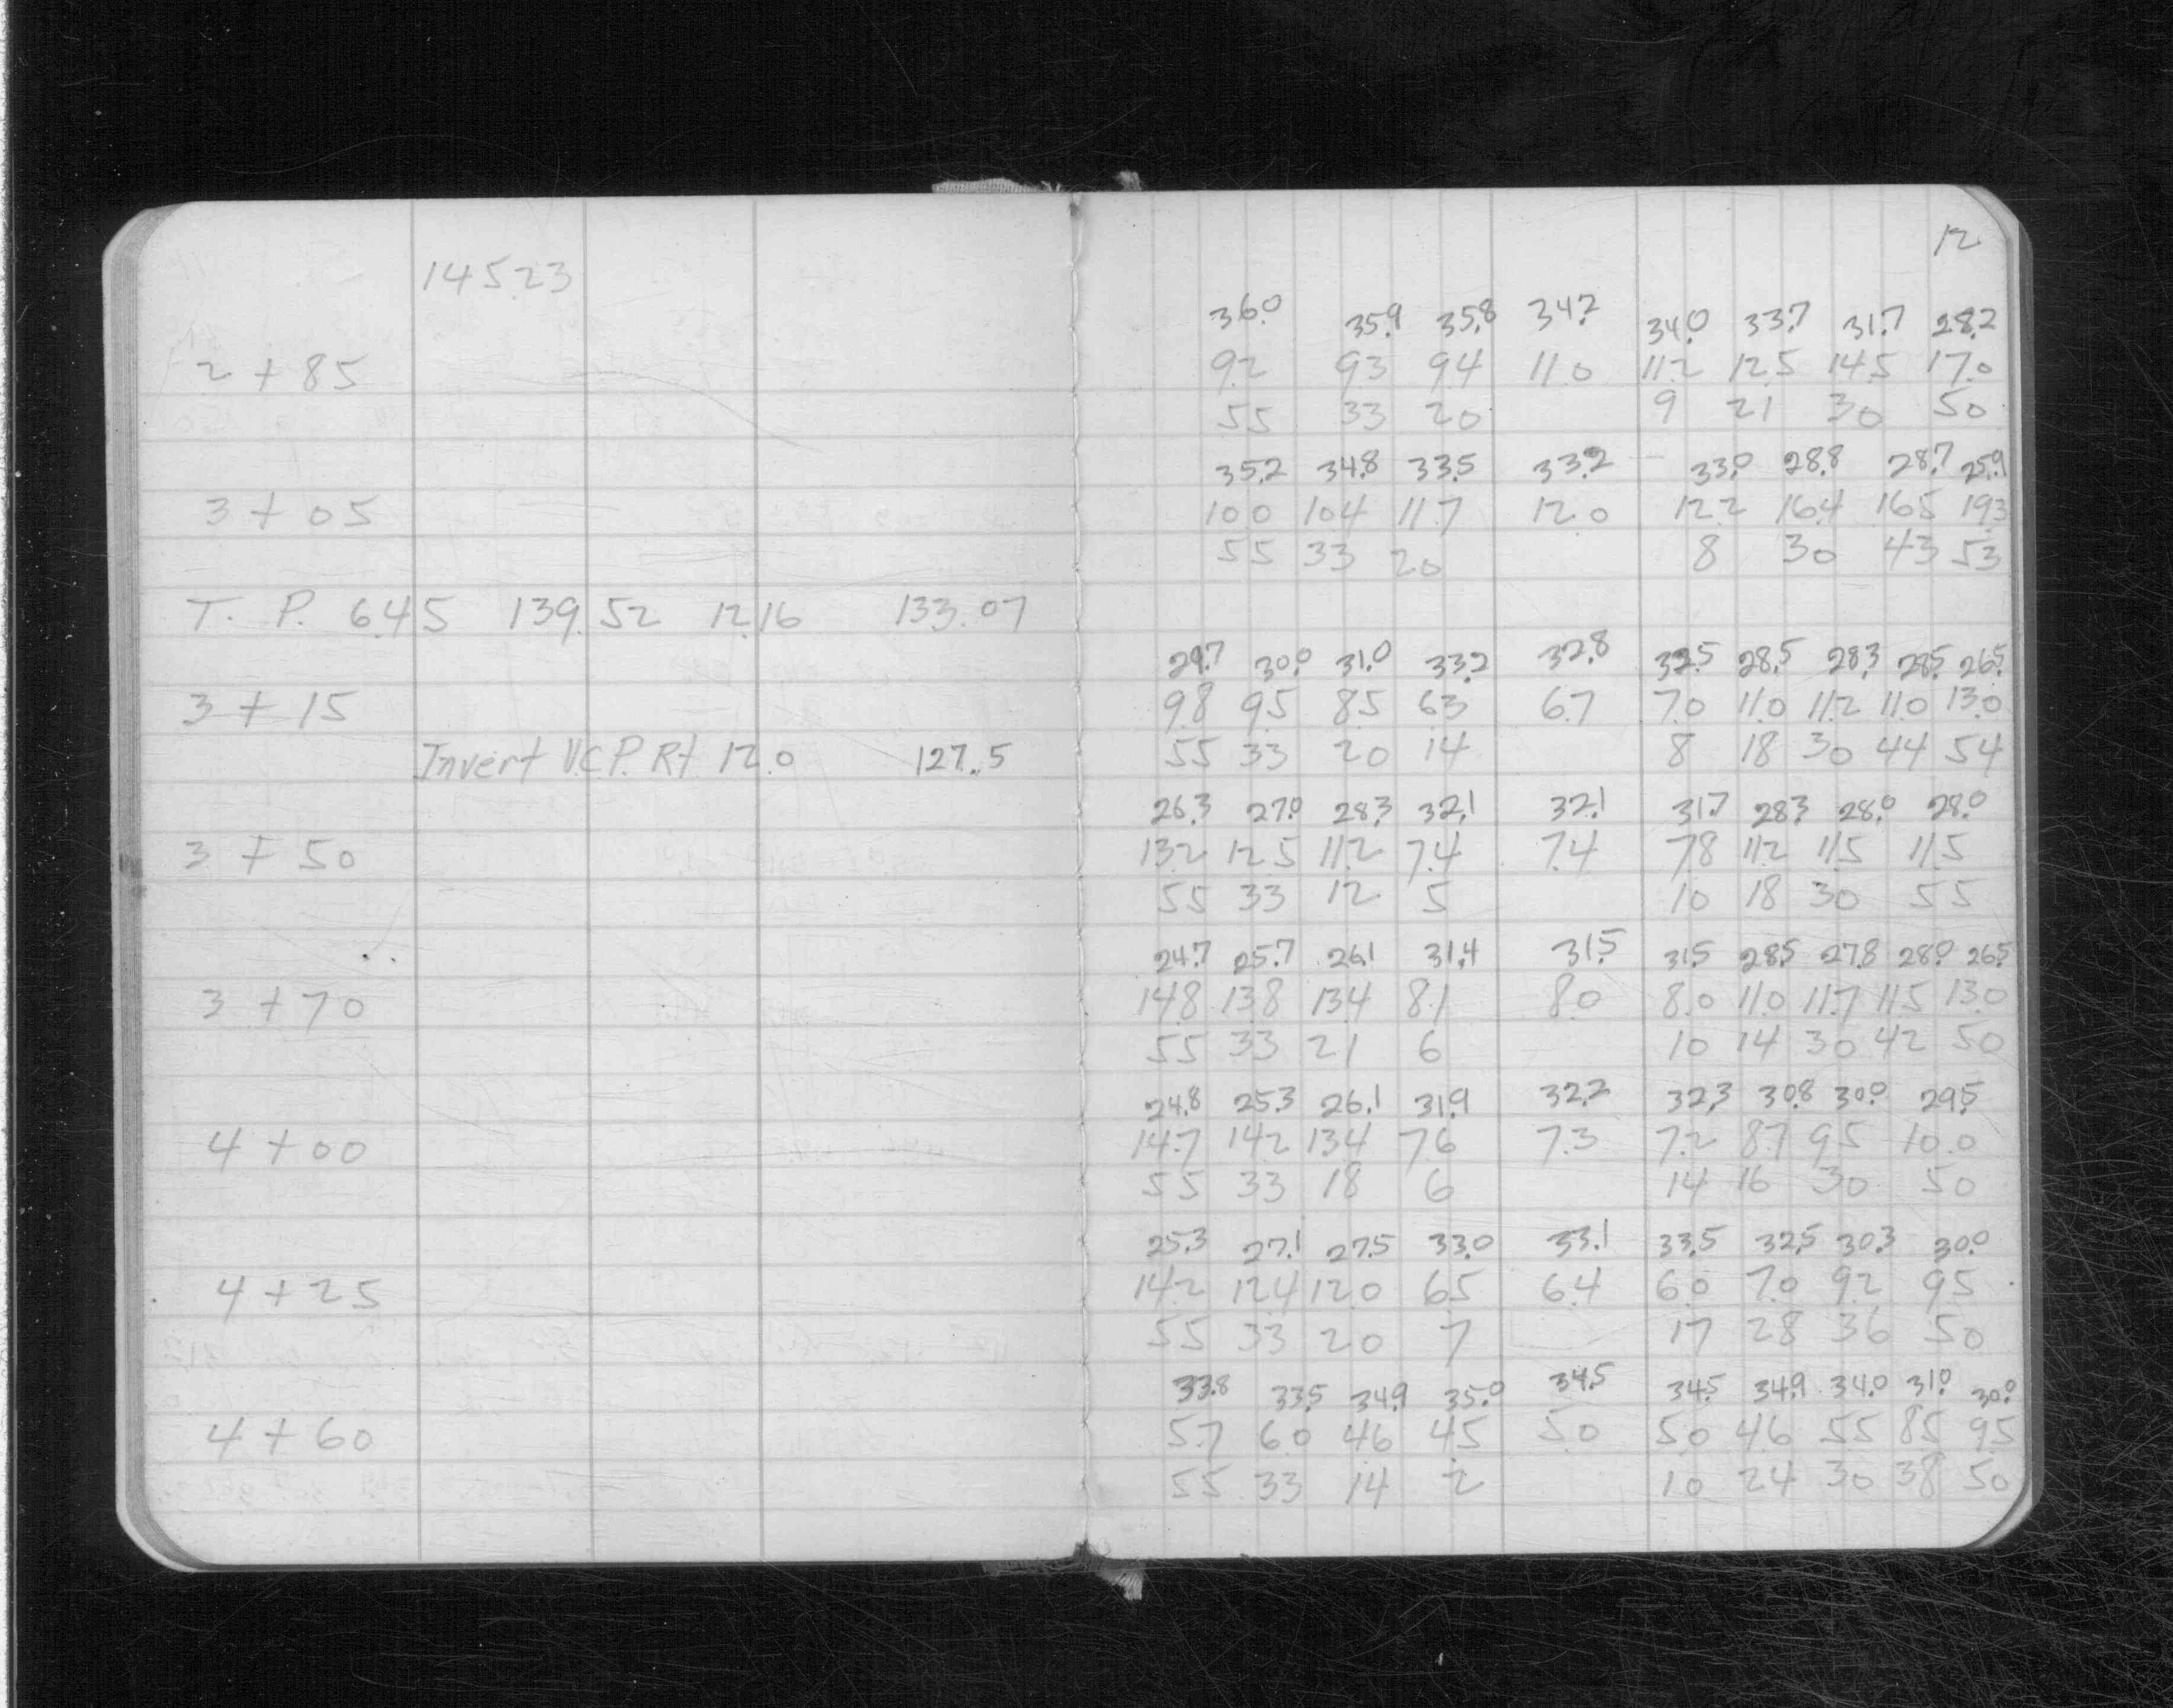 12
145.23
36.0 35.9 35.8 34.2 34.0 33.7 31.7 28.2
2 + 85 9.2 9.3 9.4 11.0 11.2 12.5 14.5 17.0
55 33 20 9 21 30 50
35.2 34.8 33.5 33.2 33.0 28.8 28.7 25.9
3 + 05 10.0 10.4 11.7 12.0 12.2 16.4 16.5 19.3
55 33 20 8 30 43 53
T. P. 6.45 139.52 12.16 133.07
29.7 30.0 31.0 33.2 32.8 32.5 28.5 28.3 28.5 26.5
3 + 15 9.8 9.5 8.5 6.3 6.7 7.0 11.0 11.2 11.0 13.0
Invert V.C.P. Rt 12.0 127.5 55 33 20 14 8 18 30 44 54
26.3 27.0 28.3 32.1 32.1 31.7 28.3 28.0 28.0
3 + 50 13.2 12.5 11.2 7.4 7.4 7.8 11.2 11.5 11.5
55 33 12 5 10 18 30 55
24.7 25.7 26.1 31.4 31.5 31.5 28.5 27.8 28.0 26.5
3 + 70 14.8 13.8 13.4 8.1 8.0 8.0 11.0 11.7 11.5 13.0
55 33 21 6 10 14 30 42 50
24.8 25.3 26.1 31.9 32.2 32.3 30.8 30.0 29.5
4 + 00 14.7 14.2 13.4 7.6 7.3 7.2 8.7 9.5 10.0
55 33 18 6 14 16 30 50
25.3 27.1 27.5 33.0 33.1 33.5 32.5 30.3 30.0
4 + 25 14.2 12.4 12.0 6.5 6.4 6.0 7.0 9.2 9.5
55 33 20 7 17 28 36 50
33.8 33.5 34.9 35.0 34.5 34.5 34.9 34.0 31.0 30.0
4 + 60 5.7 6.0 4.6 4.5 5.0 5.0 4.6 5.5 8.5 9.5
55 33 14 2 10 24 30 38 50